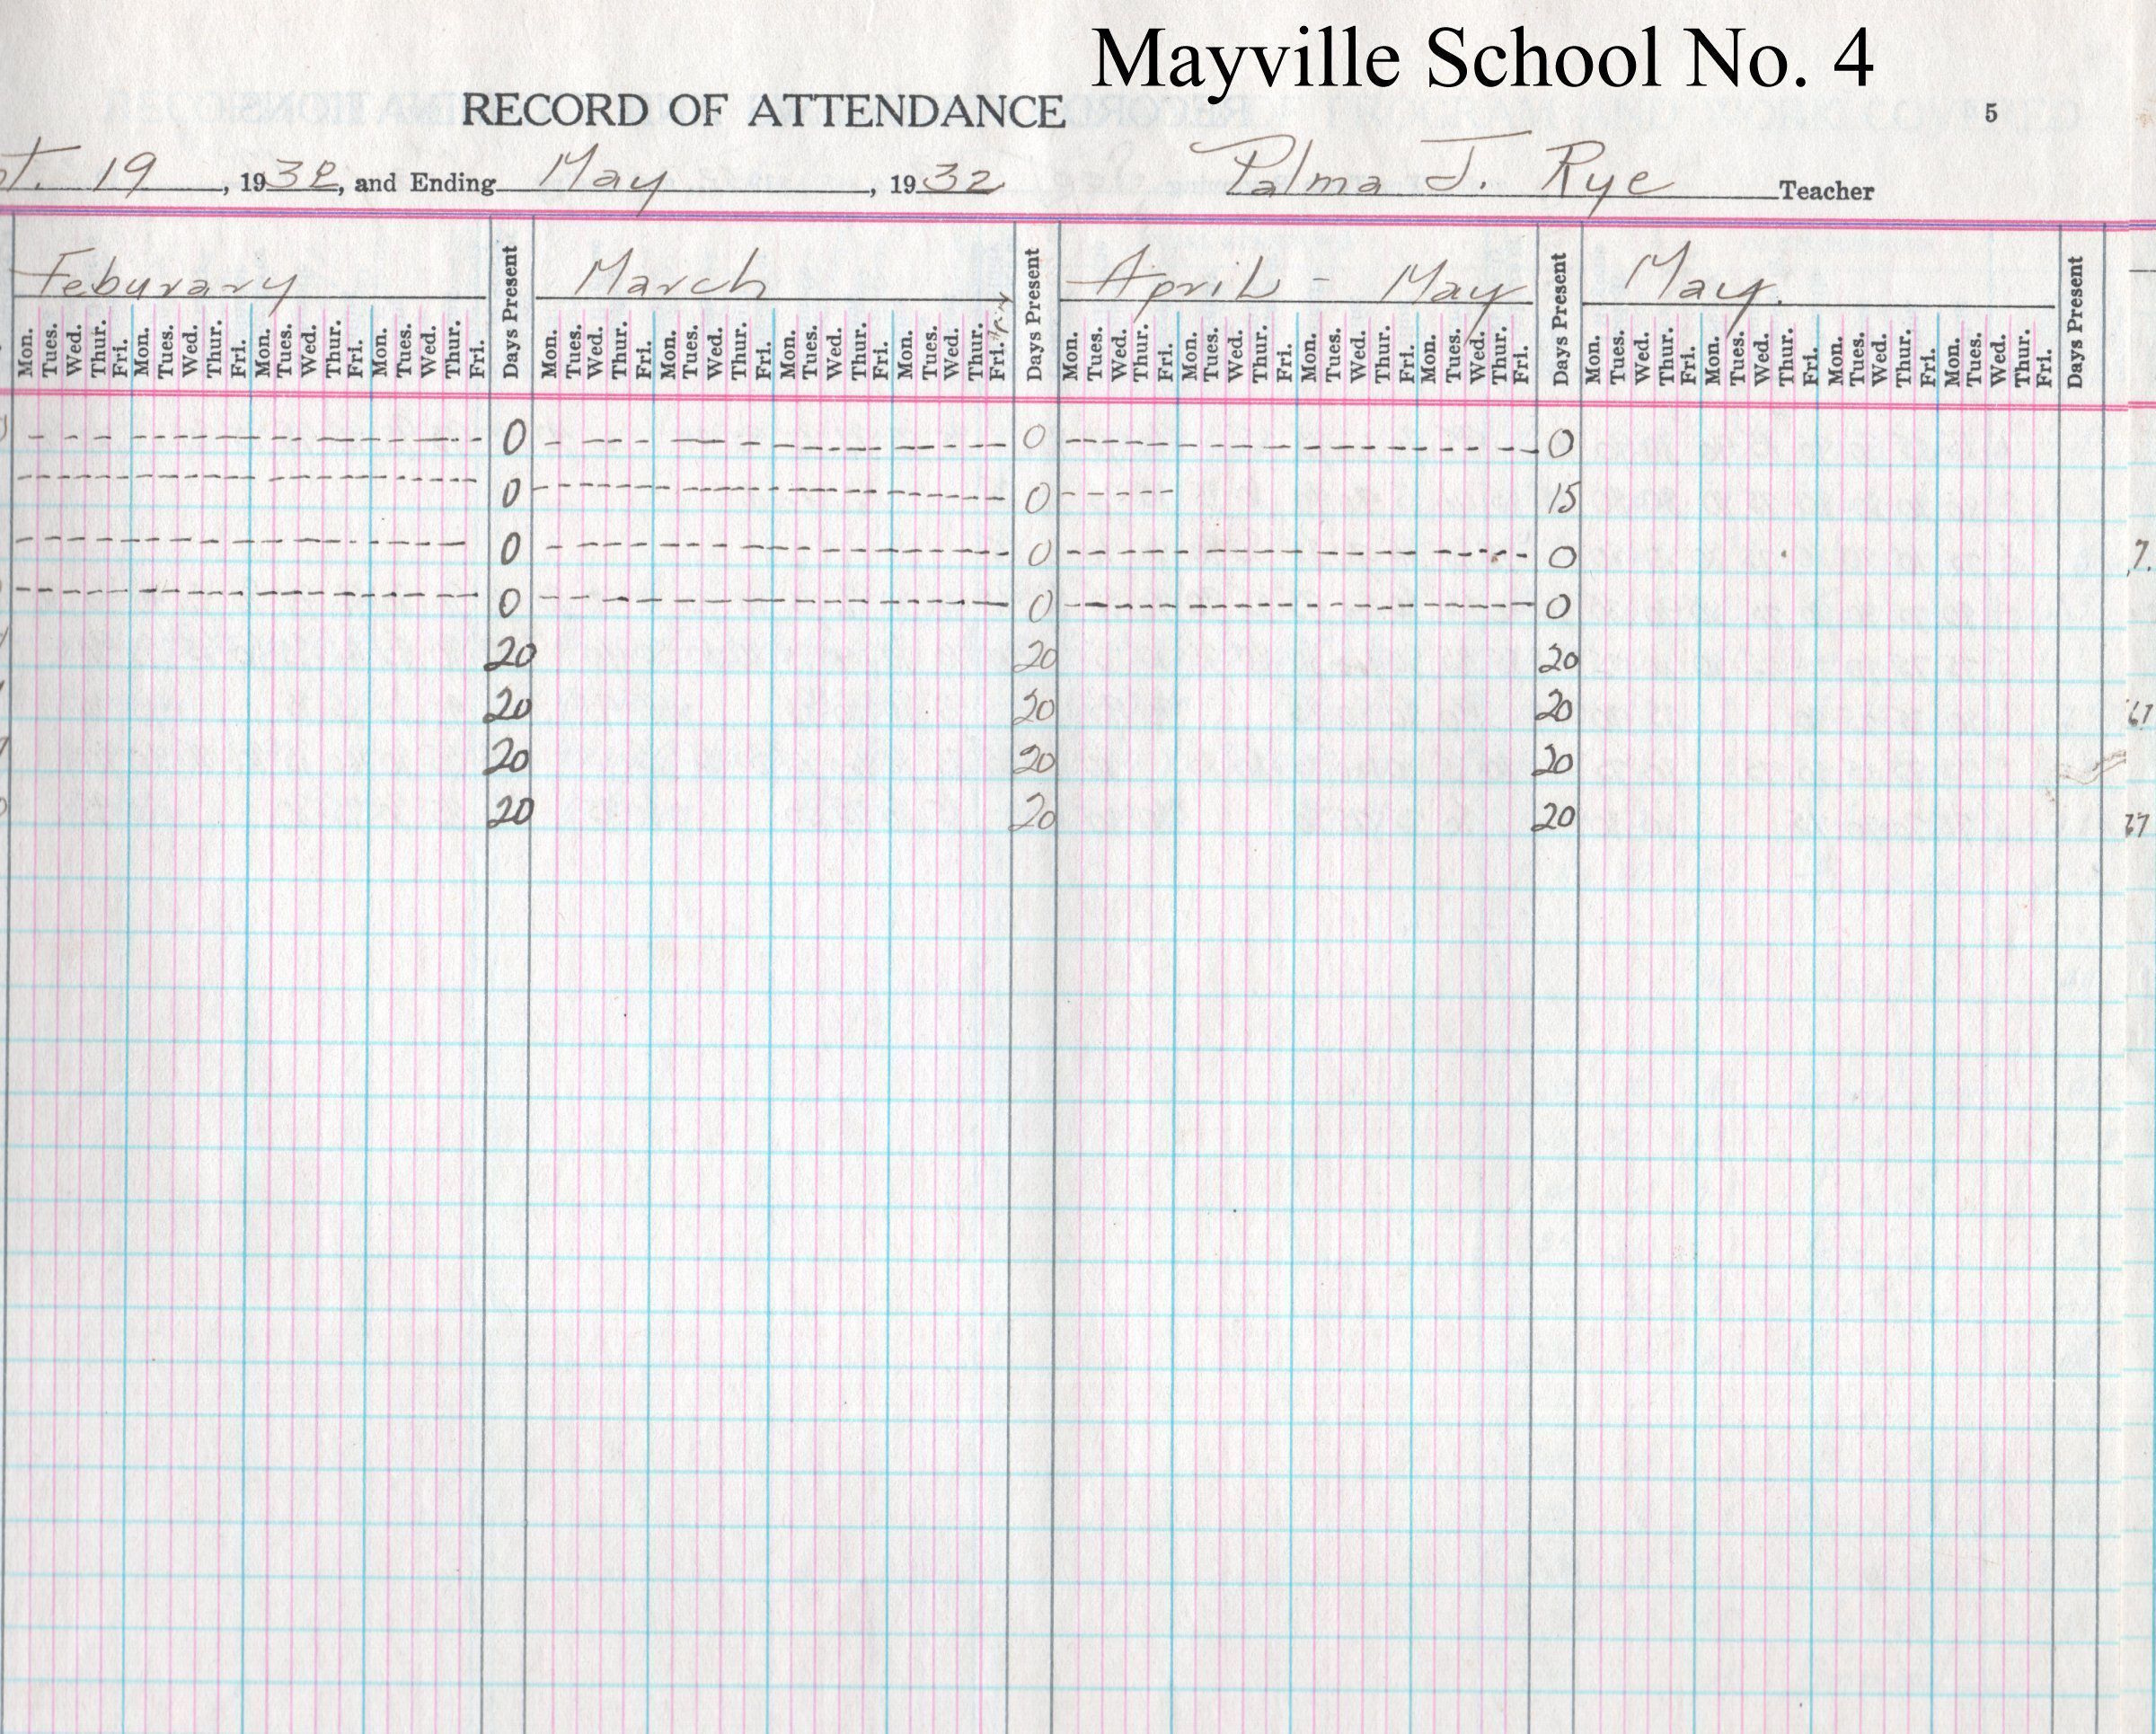 Mayville School No. 4
RECORD OF ATTENDANCE 5
t. 19, 1932, and Ending May, 1932 Palma J. Rye Teacher
Feburary Days Present March Days Present April - May Days Present May. Days Present
Mon. Tues. Wed. Thur. Fri. Mon. Tues. Wed. Thur. Fri. Mon. Tues. Wed. Thur. Fri. Mon. Tues. Wed. Thur. Fri. Mon. Tues. Wed. Thur. Fri. Mon. Tues. Wed. Thur. Fri. Mon. Tues. Wed. Thur. Fri. Mon. Tues. Wed. Thur. Fri. Mon. Tues. Wed. Thur. Fri. Mon. Tues. Wed. Thur. Fri. Mon. Tues. Wed. Thur. Fri. Mon. Tues. Wed. Thur. Fri. Mon. Tues. Wed. Thur. Fri. Mon. Tues. Wed. Thur. Fri. Mon. Tues. Wed. Thur. Fri. Mon. Tues. Wed. Thur. Fri.
0 0 0
0 0 15
0 0 0 7.
0 0 0
20 20 20
20 20 20
20 20 20
20 20 20 37